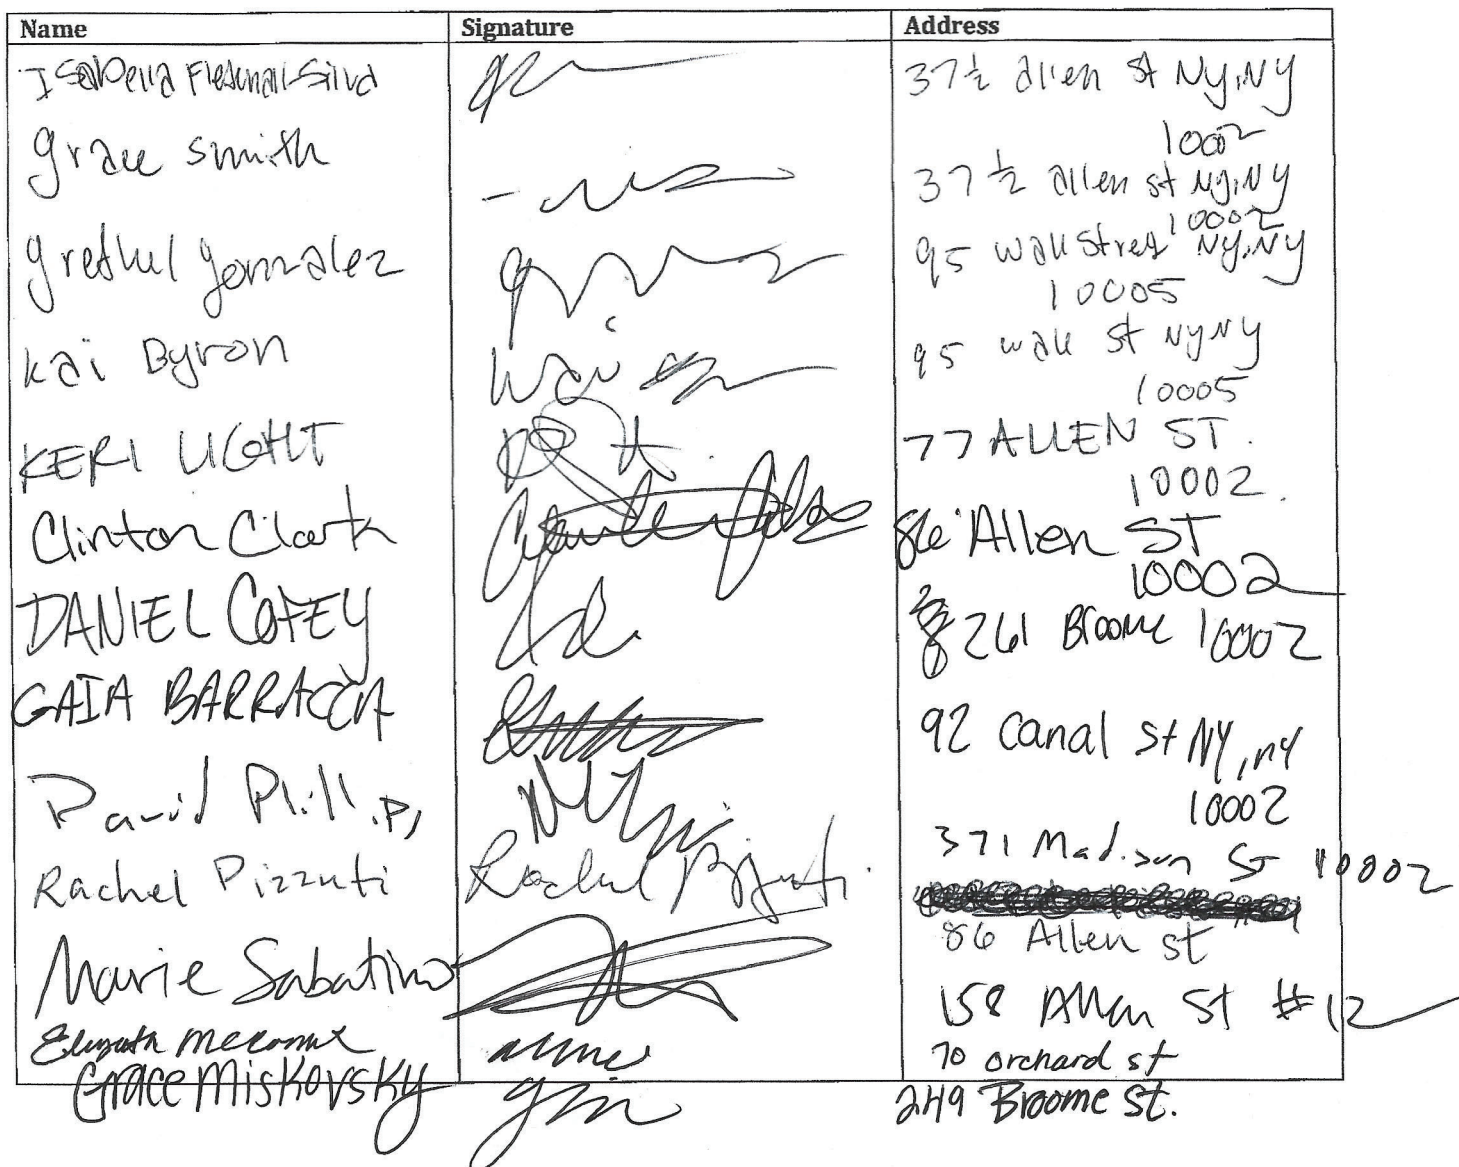 Name Signature Address
Isabella 37½ allen st Ny, NY
10002
grace smith 37½ allen st Ny, NY
10002
grethel gonzalez 95 wall street NY, NY
10005
kai Byron 95 wall st NY NY
10005
KERI LIGHT 77 ALLEN ST.
10002.
Clinton Clark 86 Allen ST
10002
DANIEL COFFEY 261 Broome 10002
GAIA BARRACCA 92 Canal St NY, NY
10002
David Phillips 371 Madison St 10002
Rachel Pizzuti Rachel Pizzuti 86 Allen st
Marie Sabatino 158 Allen St #12
70 orchard st
Grace Miskovsky 249 Broome St.